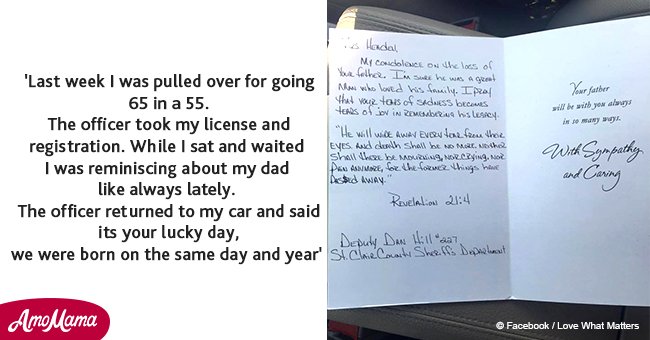 'Last week I was pulled over for going
65 in a 55.
The officer took my license and
registration. While I sat and waited
I was reminiscing about my dad
like always lately.
The officer returned to my car and said
its your lucky day,
we were born on the same day and year'
AmoMama
Hendal,
My condolence on the loss of
Your father. I'm sure he was a great
Man who loved his family. I pray
that your tears of sadness becomes
tears of joy in remembering his legacy.
"He will wipe away every tear from their
eyes. And death shall be no more, neither
shall there be mourning, nor crying, nor
pain anymore, for the former things have
passed away."
Revelation 21:4
Deputy Dan Hill #227
St. Clair County Sheriff's Department
Your father
will be with you always
in so many ways.
With Sympathy
and Caring
© Facebook / Love What Matters